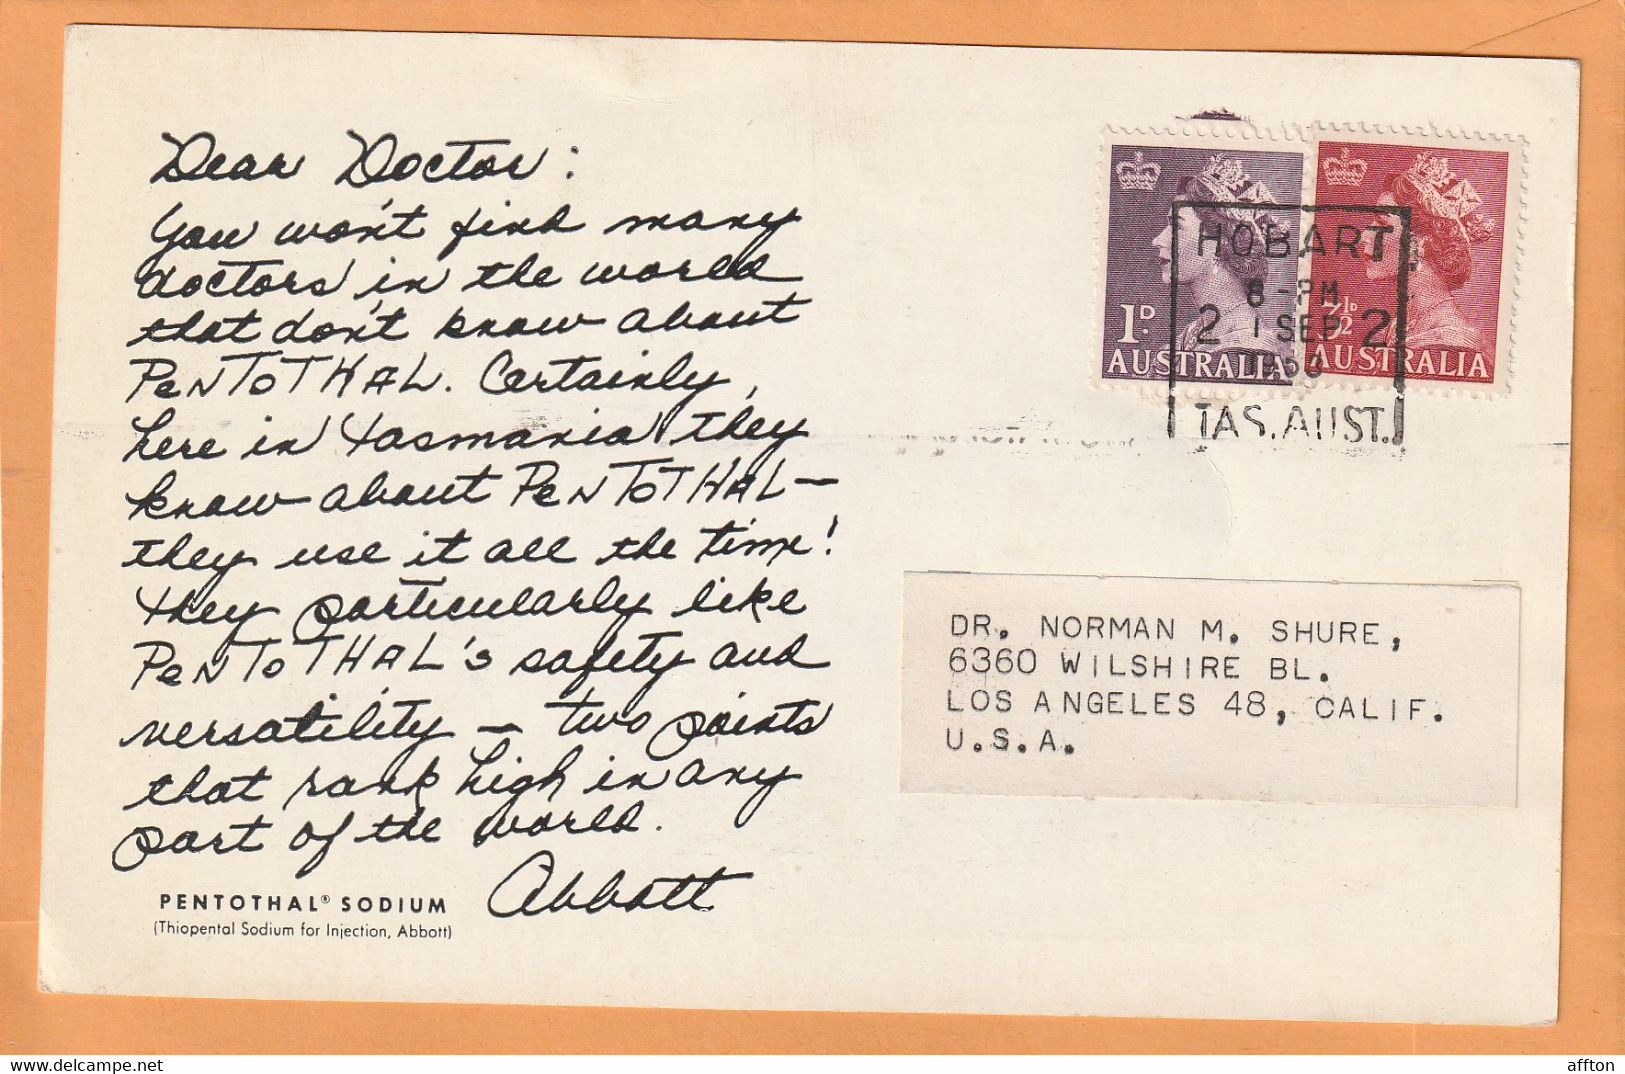 Dear Doctor:
You won't find many
doctors in the world
that don't know about
PENTOTHAL. Certainly,
here in Tasmania they
know about PENTOTHAL —
they use it all the time!
They particularly like
PENTOTHAL's safety and
versatility — two points
that rank high in any
part of the world.
Abbott
PENTOTHAL® SODIUM
(Thiopental Sodium for Injection, Abbott)
1D.
AUSTRALIA
3½D
AUSTRALIA
HOBART
8-PM
2 1 SEP 2
TAS. AUST.
DR. NORMAN M. SHURE,
6360 WILSHIRE BL.
LOS ANGELES 48, CALIF.
U.S.A.
http://www.delcampe.net
affton